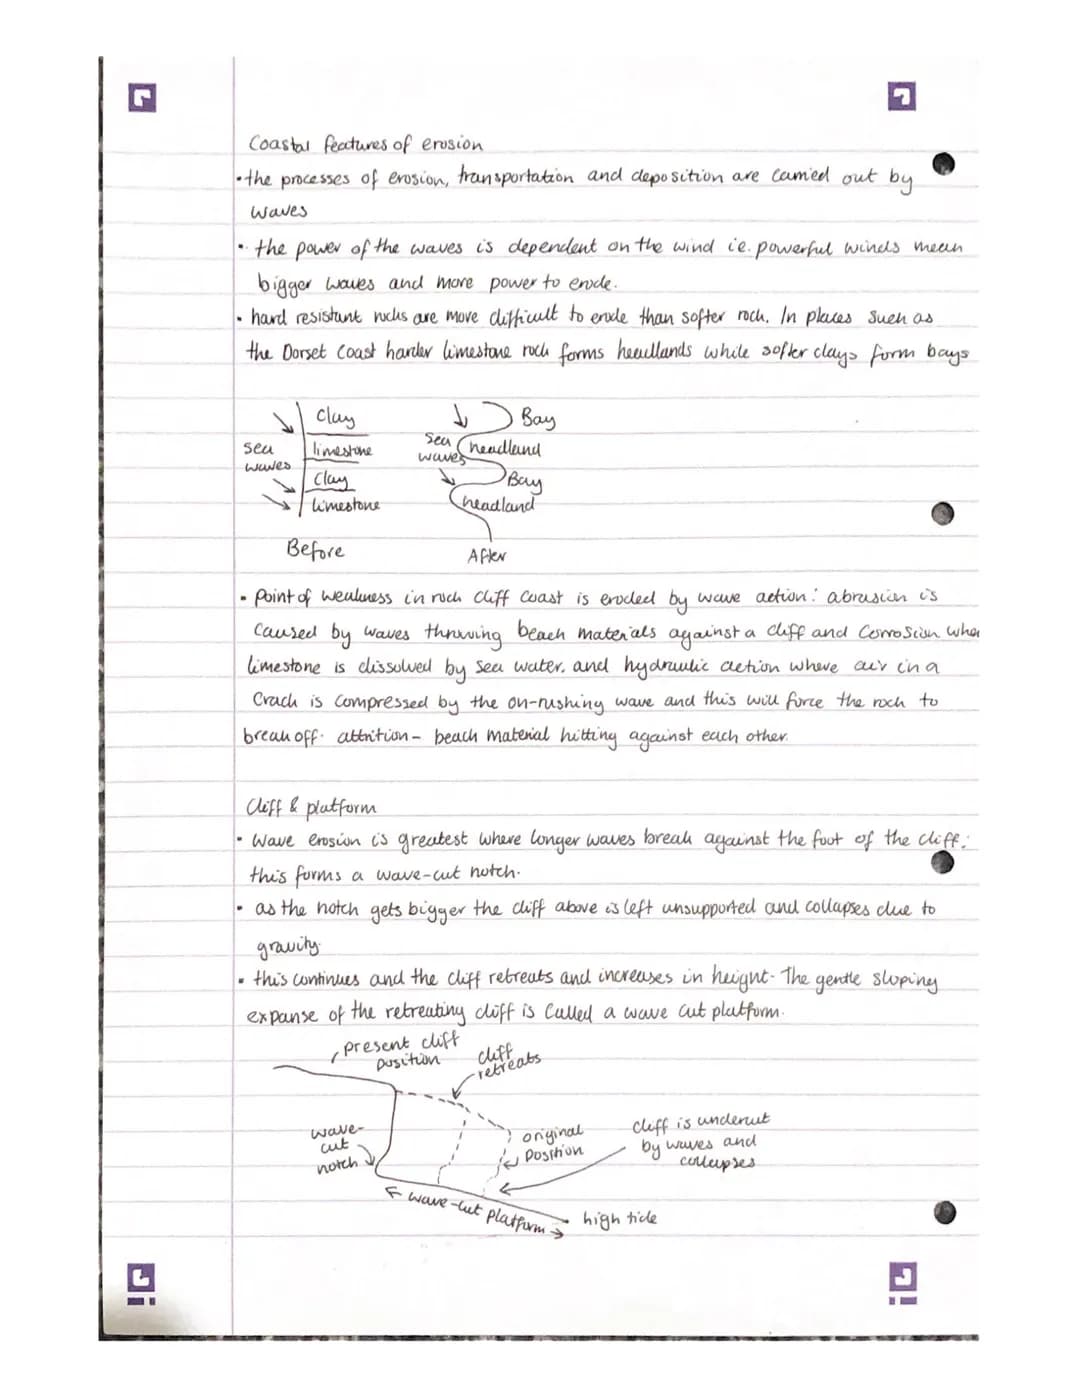 Coastal features of erosion
• the processes of erosion, transportation and deposition are carried out by
waves
• the power of the waves is dependent on the wind i.e. powerful winds mean
bigger waves and more power to erode.
• hard resistant rocks are more difficult to erode than softer rock. In places such as
the Dorset Coast harder limestone rock forms headlands while softer clays form bays
Clay
limestone
Clay
limestone
sea
waves
Before
Bay
headland
Bay
headland
sea
waves
After
• Point of weakness in rock cliff coast is eroded by wave action: abrasion is
caused by waves throwing beach materials against a cliff and corrosion wher
limestone is dissolved by sea water. and hydraulic action where air in a
crack is compressed by the on-rushing wave and this will force the rock to
break off. attrition - beach material hitting against each other.
Cliff & platform
• Wave erosion is greatest where longer waves break against the foot of the cliff;
this forms a wave-cut notch.
• as the notch gets bigger the cliff above is left unsupported and collapses due to
gravity.
• this continues and the cliff retreats and increases in height. The gentle sloping
expanse of the retreating cliff is called a wave cut platform.
present cliff
position
cliff
retreats
wave-
cut
notch
original
position
cliff is undercut
by waves and
collapses
wave-cut platform
high tide